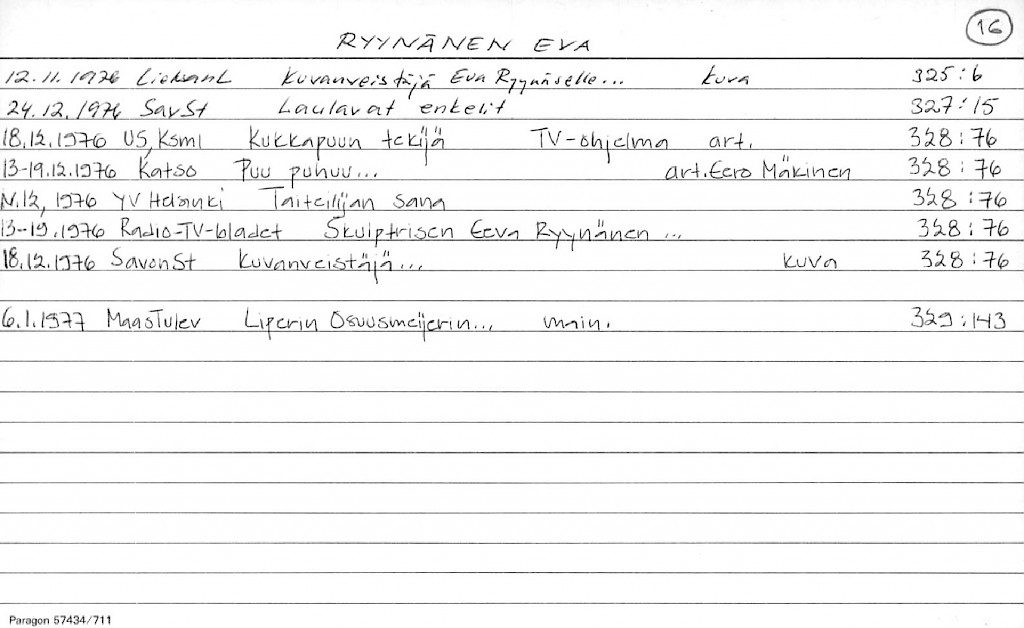 16
RYYNÄNEN EVA
12.11.1976 LieksanL Kuvanveistäjä Eva Ryynäselle... kuva 325:6
24.12.1976 SavSt Laulavat enkelit 327:15
18.12.1976 US, Ksml Kukkapuun tekijä TV-ohjelma art. 328:76
13-19.12.1976 Katso Puu puhuu... art. Eero Mäkinen 328:76
N:12, 1976 YV Helsinki Taiteilijan sana 328:76
13-19.1976 Radio-TV-bladet Skulptrisen Eeva Ryynänen... 328:76
18.12.1976 SavonSt Kuvanveistäjä... kuva 328:76
6.1.1977 MaasTulev Liperin Osuusmeijerin... main. 329:143
Paragon 57434/711